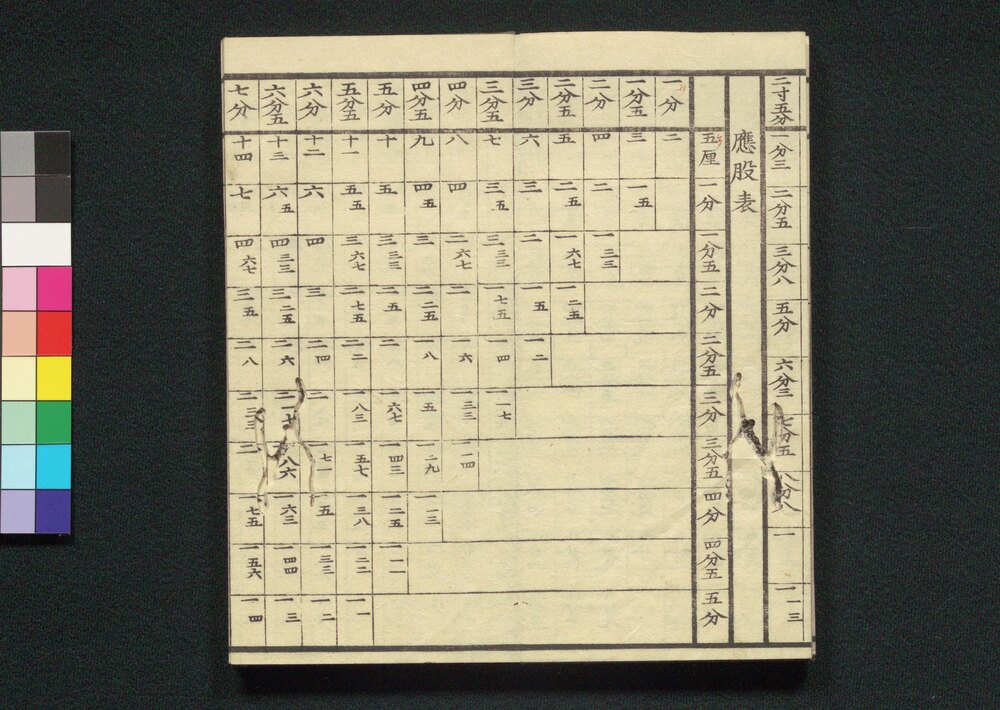 二寸五分 一分三 二分五 三分八 五分 六分三 七分五 八分八 一 一一三
應股表
五厘 一分 一分五 二分 二分五 三分 三分五 四分 四分五 五分
一分 二
一分五 三 一五
二分 四 二 一三三
二分五 五 二五 一六七 一二五
三分 六 三 二 一五 一二
三分五 七 三五 二三三 一七五 一四 一一七
四分 八 四 二六七 二 一六 一三三 一一四
四分五 九 四五 三 二二五 一八 一五 一二九 一一三
五分 十 五 三三三 二五 二 一六七 一四三 一二五 一一一
五分五 十一 五五 三六七 二七五 二二 一八三 一五七 一三八 一二二 一一
六分 十二 六 四 三 二四 二 一七一 一五 一三三 一二
六分五 十三 六五 四三三 三二五 二六 二一七 一八六 一六三 一四四 一三
七分 十四 七 四六七 三五 二八 二三三 二 一七五 一五六 一四